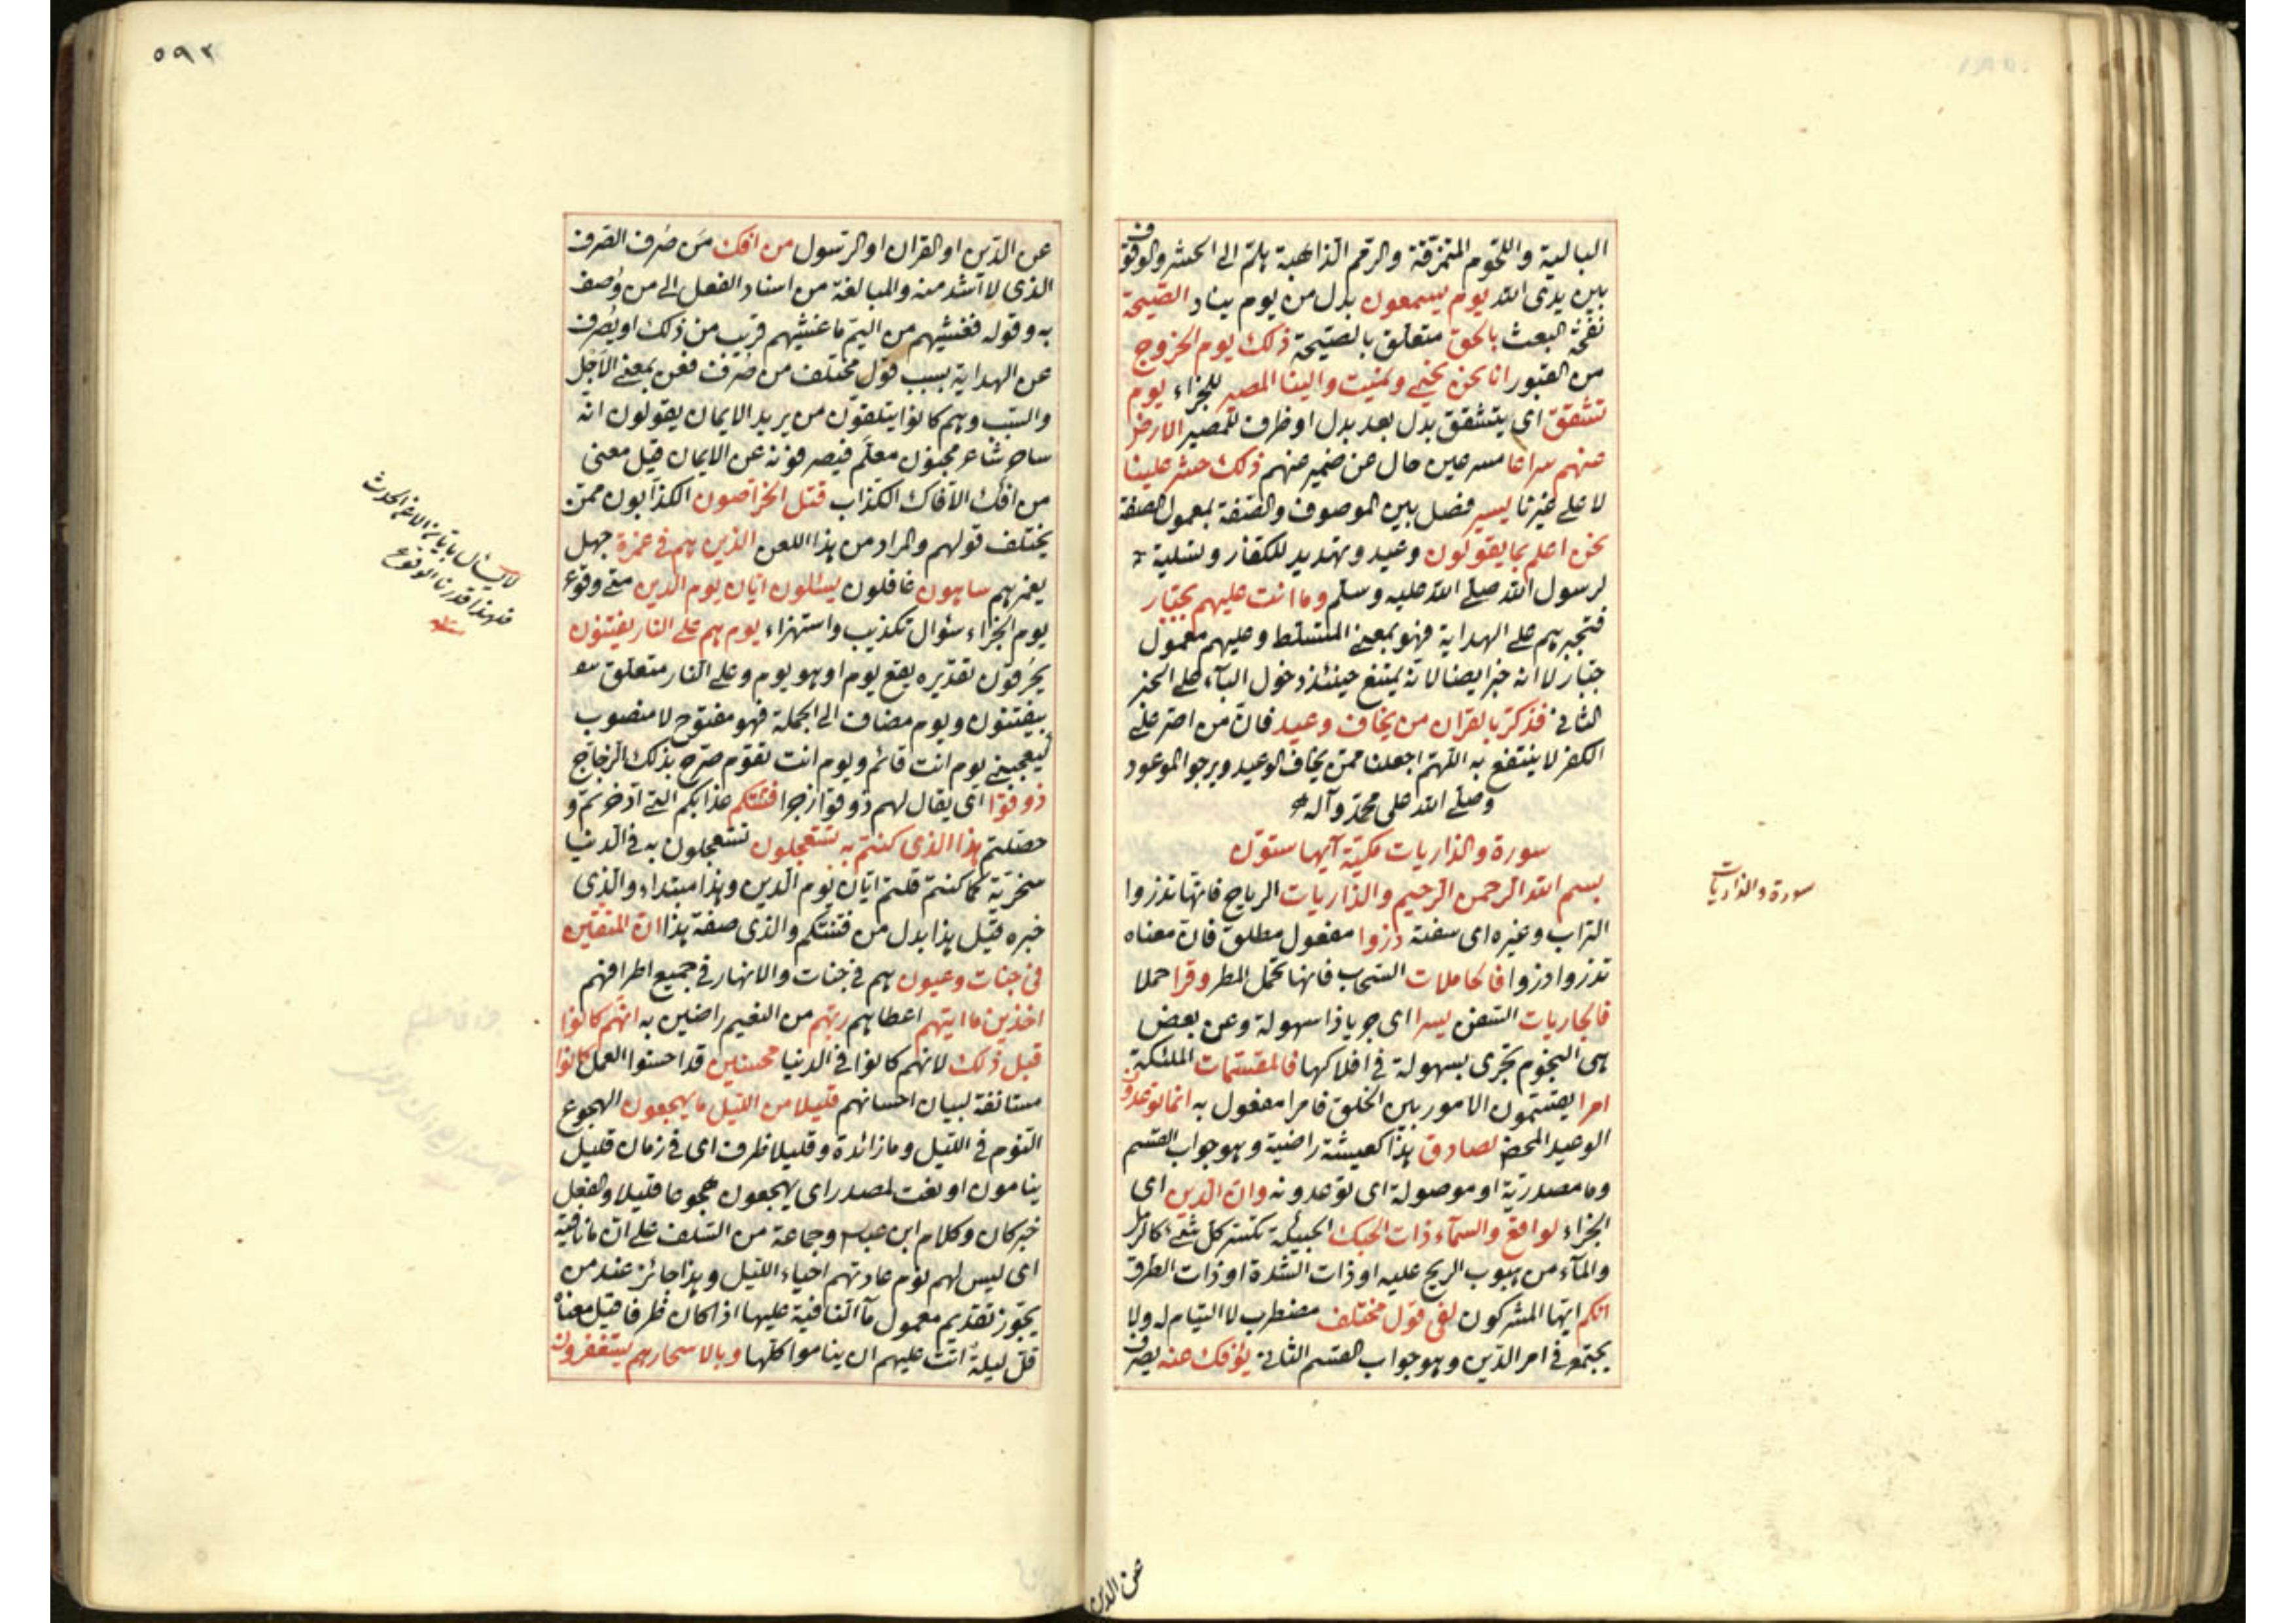 البالية واللحوم المتمزقة والرمم الذاهبة هلم الى الحشر والوقوف
بين يدى الله يوم يسمعون بدل من يوم يناد الصيحة
نفخة البعث بالحق متعلق بالصيحة ذلك يوم الخروج
من القبور انا نحن نحيي ونميت والينا المصير للجزاء يوم
تشقق اى يتشقق بدل بعد بدل او ظرف للمصير الارض
عنهم سراعا مسرعين حال من ضمير عنهم ذلك حشر علينا
لا على غيرنا يسير فصل بين الموصوف والصفة بمعمول الصفة
نحن اعلم بما يقولون وعيد وتهديد للكفار وتسلية
لرسول الله صلى الله عليه وسلم وما انت عليهم بجبار
فتجبرهم على الهداية فهو بمعنى المتسلط وعليهم معمول
جبار لا انه خبر ايضا لانه يمتنع حينئذ دخول الباء على الخبر
الثانى فذكر بالقران من يخاف وعيد فان من اصر على
الكفر لا ينتفع به اللهم اجعلنا ممن يخاف الوعيد ويرجو الموعود
وصلى الله على محمد وآله
سورة والذاريات مكية آيها ستون
سورة والذاريات
بسم الله الرحمن الرحيم والذاريات الرياح فانها تذروا
التراب وغيره اى سفته ذروا مفعول مطلق فان معناه
تذروا ذروا فالحاملات السحاب فانها تحمل المطر وقرا حملا
فالجاريات السفن يسرا اى جريا ذا سهولة وعن بعض
هى النجوم تجرى بسهولة فى افلاكها فالمقسمات الملئكة
امرا يقسمون الامور بين الخلق فامرا مفعول به انما توعدون
الوعيد المحض لصادق هذا كعيشة راضية وهو جواب القسم
وما مصدرية او موصولة اى توعدونه وان الدين اى
الجزاء لواقع والسماء ذات الحبك الحبيكة تكسر كل شئ كالرمل
والماء من هبوب الريح عليه او ذات الشدة او ذات الطرق
انكم ايها المشركون لفى قول مختلف مضطرب لا التيام له ولا
يجتمع فى امر الدين وهو جواب القسم الثانى يؤفك عنه يصرف
عن الدين
٥٩٢
عن الدين او القران او الرسول من افك من صرف الصرف
الذى لا اشد منه والمبالغة من اسناد الفعل الى من وصف
به وقوله فغشيهم من اليم ما غشيهم قريب من ذلك او يصرف
عن الهداية بسبب قول مختلف من صرف فعن بمعنى الاجل
والسبب وهم كانوا يتلقون من يريد الايمان يقولون انه
ساحر شاعر مجنون معلم فيصرفونه عن الايمان قيل معنى
من افك الافاك الكذاب قتل الخراصون الكذابون ممن
يختلف قولهم والمراد من هذا اللعن الذين هم فى غمرة جهل
يغمرهم ساهون غافلون يسئلون ايان يوم الدين متى وقوع
يوم الجزاء سؤال تكذيب واستهزاء يوم هم على النار يفتنون
يحرقون تقديره يقع يوم او هو يوم وعلى النار متعلق
بيفتنون ويوم مضاف الى الجملة فهو مفتوح لا منصوب
ليعجبنى يوم انت قائم ويوم انت تقوم صرح بذلك الزجاج
ذوقوا اى يقال لهم ذوقوا زجرا فتنتكم عذابكم التى ادخرتم و
حصلتم هذا الذى كنتم به تستعجلون تستعجلون به فى الدنيا
سخرية كما كنتم قلتم ايان يوم الدين وهذا مبتداء والذى
خبره قيل هذا بدل من فتنتكم والذى صفة هذا ان المتقين
فى جنات وعيون هم فى جنات والانهار فى جميع اطرافهم
اخذين ما اتيهم اعطاهم ربهم من النعيم راضين به انهم كانوا
قبل ذلك لانهم كانوا فى الدنيا محسنين قد احسنوا العمل كانوا
مستانفة لبيان احسانهم قليلا من الليل ما يهجعون الهجوع
النوم فى الليل وما زائدة وقليلا ظرف اى فى زمان قليل
ينامون او نعت لمصدر اى يهجعون هجوعا قليلا والفعل
خبر كان وكلام ابن عباس وجماعة من السلف على ان ما نافية
اى ليس لهم نوم عادتهم احياء الليل وهذا جائز عند من
يجوز تقديم معمول ما النافية عليها اذا كان ظرفا قيل معناه
قل ليلة اتت عليهم ان يناموا كلها وبالاسحار هم يستغفرون